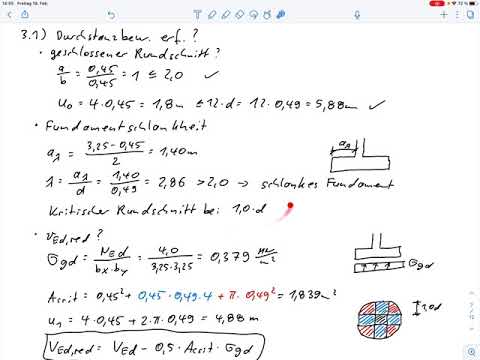 14:55 Freitag 18. Feb.
72 %
3.1) Durchstanzbew. erf. ?
• geschlossener Rundschnitt?
a/b = 0,45/0,45 = 1 ≤ 2,0 ✓
u₀ = 4·0,45 = 1,8m ≤ 12·d = 12·0,49 = 5,88m ✓
• Fundamentschlankheit
aλ = (3,25-0,45)/2 = 1,40m
aλ
λ = aλ/d = 1,40/0,49 = 2,86 > 2,0 → schlankes Fundament
Kritischer Rundschnitt bei: 1,0·d
• VEd,red ?
σgd = NEd/(bx·by) = 4,0/(3,25·3,25) = 0,379 MN/m²
Acrit = 0,45² + 0,45·0,49·4 + π·0,49² = 1,839m²
1,0d
u₁ = 4·0,45 + 2·π·0,49 = 4,88m
VEd,red = VEd - 0,5·Acrit·σgd